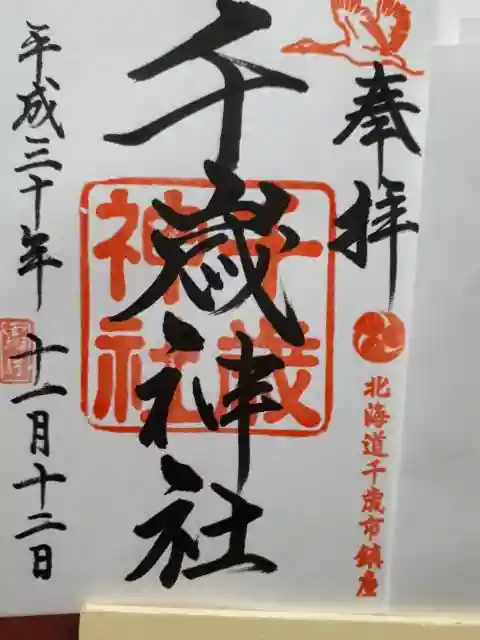 奉拝
北海道千歳市鎮座
千歳神社
千歳神社
平成三十年 十一月十二日